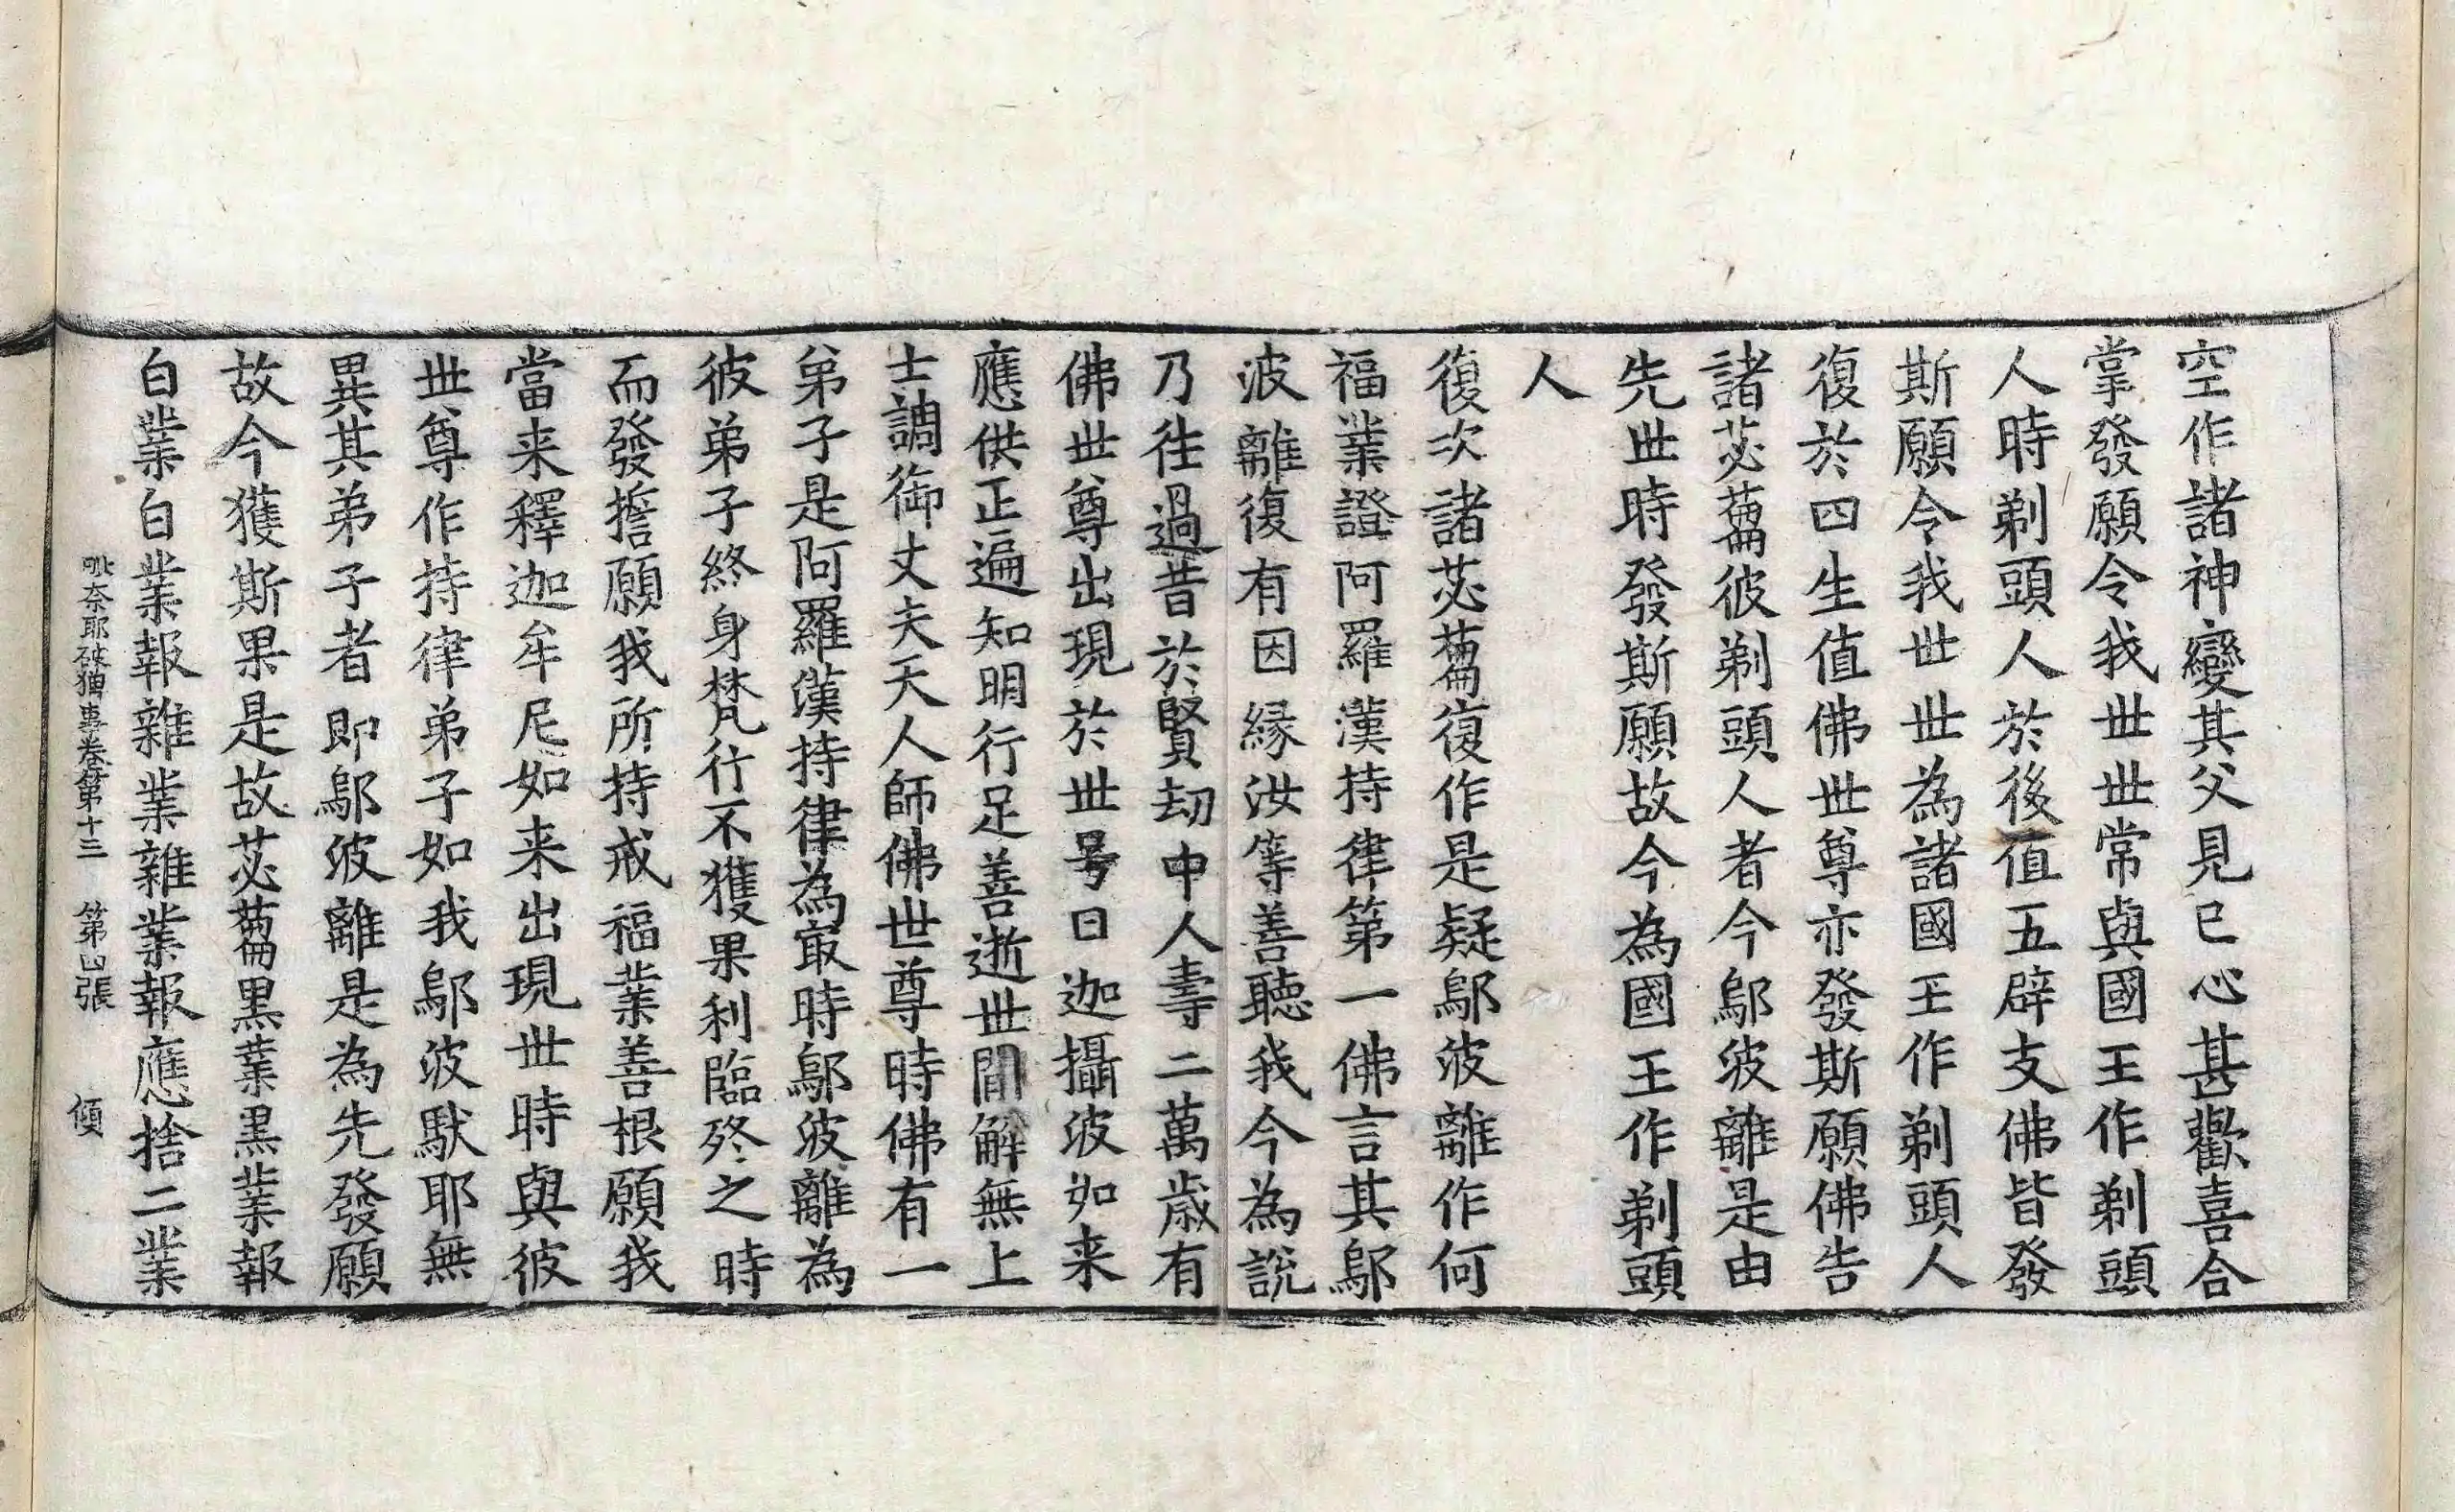 空作諸神變其父見已心甚歡喜合
掌發願令我世世常與國王作剃頭
人時剃頭人於後值五辟支佛皆發
斯願令我世世為諸國王作剃頭人
復於四生值佛世尊亦發斯願佛告
諸苾蒭彼剃頭人者今鄔波離是由
先世時發斯願故今為國王作剃頭
人
復次諸苾蒭復作是疑鄔波離作何
福業證阿羅漢持律第一佛言其鄔
波離復有因緣汝等善聽我今為說
乃往過昔於賢劫中人壽二萬歲有
佛世尊出現於世号曰迦攝波如来
應供正遍知明行足善逝世間解無上
士調御丈夫天人師佛世尊時佛有一
弟子是阿羅漢持律為冣時鄔波離為
彼弟子終身梵行不獲果利臨終之時
而發誓願我所持戒福業善根願我
當来釋迦牟尼如来出現世時與彼
世尊作持律弟子如我鄔波馱耶無
異其弟子者即鄔波離是為先發願
故今獲斯果是故苾蒭黑業黑業報
白業白業報雜業雜業報應捨二業
毗奈耶破僧事卷第十三 第凵張 傾